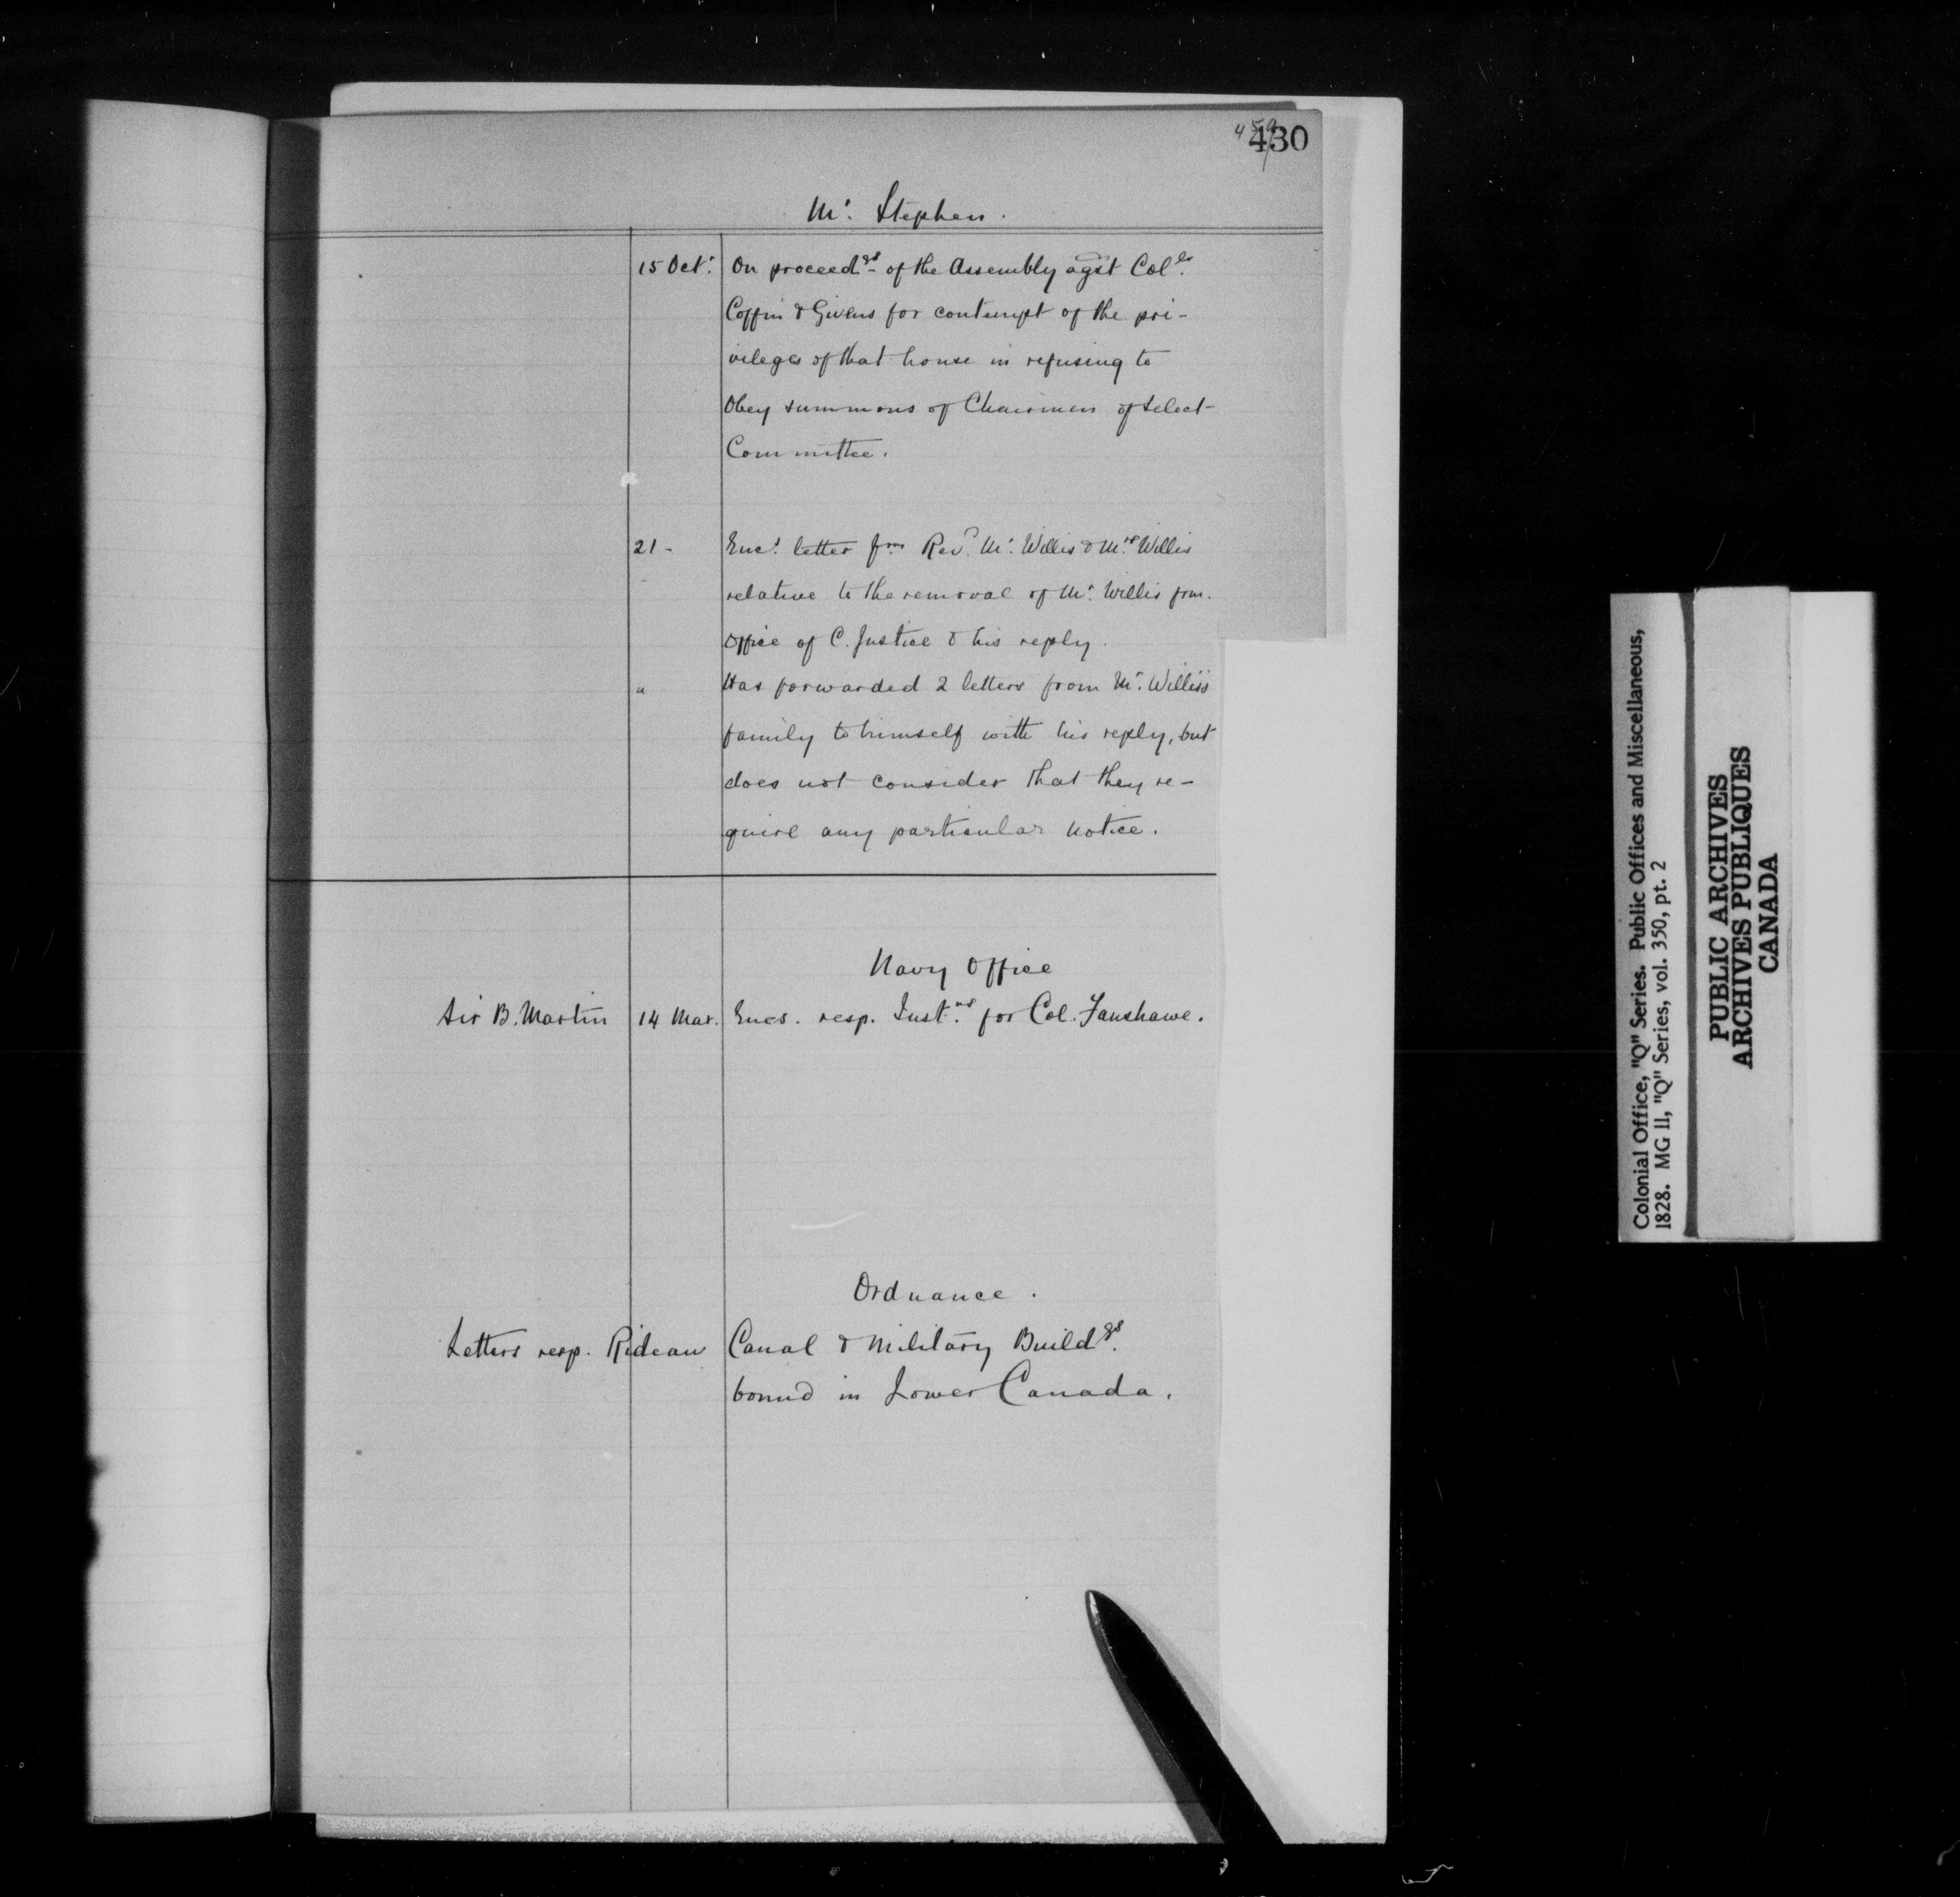 430
Mr. Stephen.
15 Oct. On proceedgs of the Assembly agst Cols.
Coffin & Givens for contempt of the pri-
vileges of that house in refusing to
Obey summons of Chairmen of Select
Committee.
21 - Encs. letter frm Revd. Mr. Willis & Mrs Willis
relative to the removal of Mr. Willis frm.
Office of C. Justice & his reply.
" Has forwarded 2 letters from Mr. Willis's
family to himself with his reply, but
does not consider that they re-
quire any particular notice.
Navy Office
Sir B. Martin 14 Mar. Encs. resp. Instns for Col. Fanshawe.
Ordnance.
Letters resp. Rideau Canal & Military Buildgs.
bound in Lower Canada.
Colonial Office, "Q" Series. Public Offices and Miscellaneous,
1828. MG 11, "Q" Series, vol. 350, pt. 2
PUBLIC ARCHIVES
ARCHIVES PUBLIQUES
CANADA